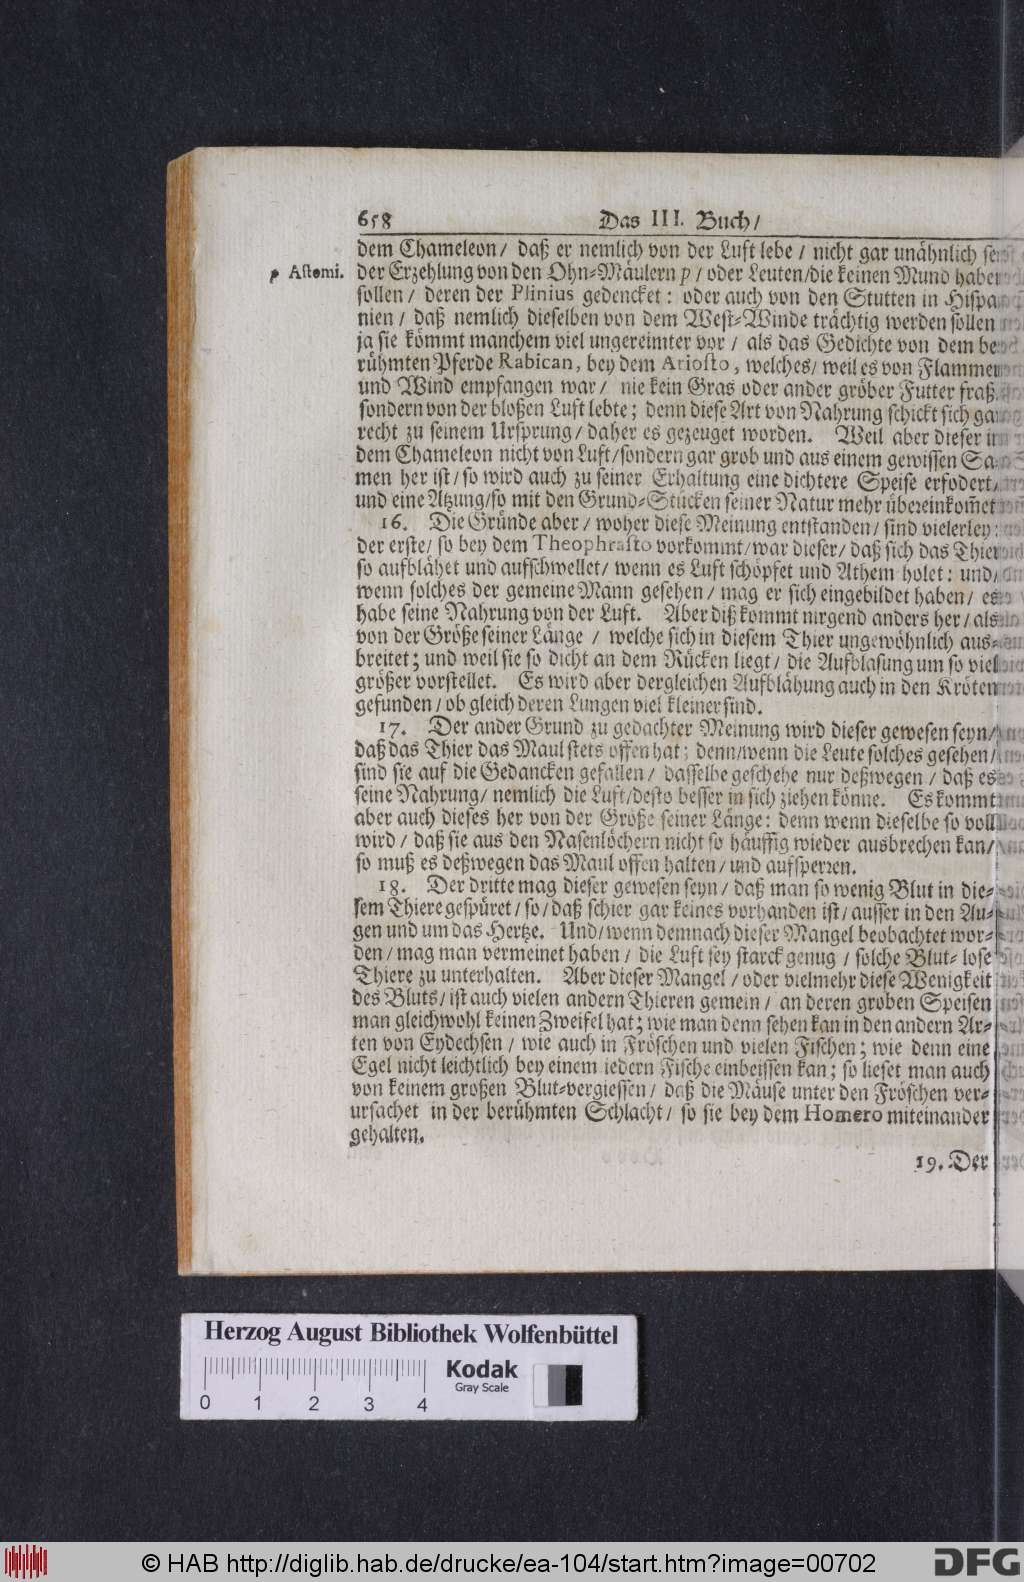 658 Das III. Buch/
dem Chameleon/ daß er nemlich von der Luft lebe/ nicht gar unähnlich
p Astomi. der Erzehlung von den Ohn-Mäulern p/ oder Leuten/die keinen Mund haben
sollen/ deren der Plinius gedencket: oder auch von den Stutten in Hispa-
nien/ daß nemlich dieselben von dem West-Winde trächtig werden sollen
ja sie kömmt manchem viel ungereimter vor/ als das Gedichte von dem be-
rühmten Pferde Rabican, bey dem Ariosto, welches/ weil es von Flammen
und Wind empfangen war/ nie kein Gras oder ander gröber Futter fraß
sondern von der bloßen Luft lebte; denn diese Art von Nahrung schickt sich gar
recht zu seinem Ursprung/ daher es gezeuget worden. Weil aber dieser in
dem Chameleon nicht von Luft/sondern gar grob und aus einem gewissen Sa-
men her ist/ so wird auch zu seiner Erhaltung eine dichtere Speise erfodert/
und eine Atzung/so mit den Grund-Stücken seiner Natur mehr übereinkom̃et
16. Die Gründe aber/ woher diese Meinung entstanden/ sind vielerley:
der erste/ so bey dem Theophrasto vorkommt/war dieser/ daß sich das Thier
so aufblähet und aufschwellet/ wenn es Luft schöpfet und Athem holet: und/
wenn solches der gemeine Mann gesehen/ mag er sich eingebildet haben/ es
habe seine Nahrung von der Luft. Aber diß kommt nirgend anders her/ als
von der Größe seiner Länge/ welche sich in diesem Thier ungewöhnlich aus-
breitet; und weil sie so dicht an dem Rücken liegt/ die Aufblasung um so viel
größer vorstellet. Es wird aber dergleichen Aufblähung auch in den Kröten
gefunden/ ob gleich deren Lungen viel kleiner sind.
17. Der ander Grund zu gedachter Meinung wird dieser gewesen seyn/
daß das Thier das Maul stets offen hat; denn/wenn die Leute solches gesehen/
sind sie auf die Gedancken gefallen/ dasselbe geschehe nur deßwegen/ daß es
seine Nahrung/ nemlich die Luft/desto besser in sich ziehen könne. Es kommt
aber auch dieses her von der Größe seiner Länge: denn wenn dieselbe so voll
wird/ daß sie aus den Nasenlöchern nicht so häuffig wieder ausbrechen kan/
so muß es deßwegen das Maul offen halten/ und aufsperren.
18. Der dritte mag dieser gewesen seyn/ daß man so wenig Blut in die-
sem Thiere gespüret/ so/ daß schier gar keines vorhanden ist/ ausser in den Au-
gen und um das Hertze. Und/ wenn demnach dieser Mangel beobachtet wor-
den/ mag man vermeinet haben/ die Luft sey starck genug/ solche Blut-lose
Thiere zu unterhalten. Aber dieser Mangel/ oder vielmehr diese Wenigkeit
des Bluts/ ist auch vielen andern Thieren gemein/ an deren groben Speisen
man gleichwohl keinen Zweifel hat; wie man denn sehen kan in den andern Ar-
ten von Eydechsen/ wie auch in Fröschen und vielen Fischen; wie denn eine
Egel nicht leichtlich bey einem iedern Fische einbeissen kan; so lieset man auch
von keinem großen Blut-vergiessen/ daß die Mäuse unter den Fröschen ver-
ursachet in der berühmten Schlacht/ so sie bey dem Homero miteinander
gehalten.
19. Der
Herzog August Bibliothek Wolfenbüttel
Kodak
Gray Scale
0 1 2 3 4
© HAB http://diglib.hab.de/drucke/ea-104/start.htm?image=00702
DFG